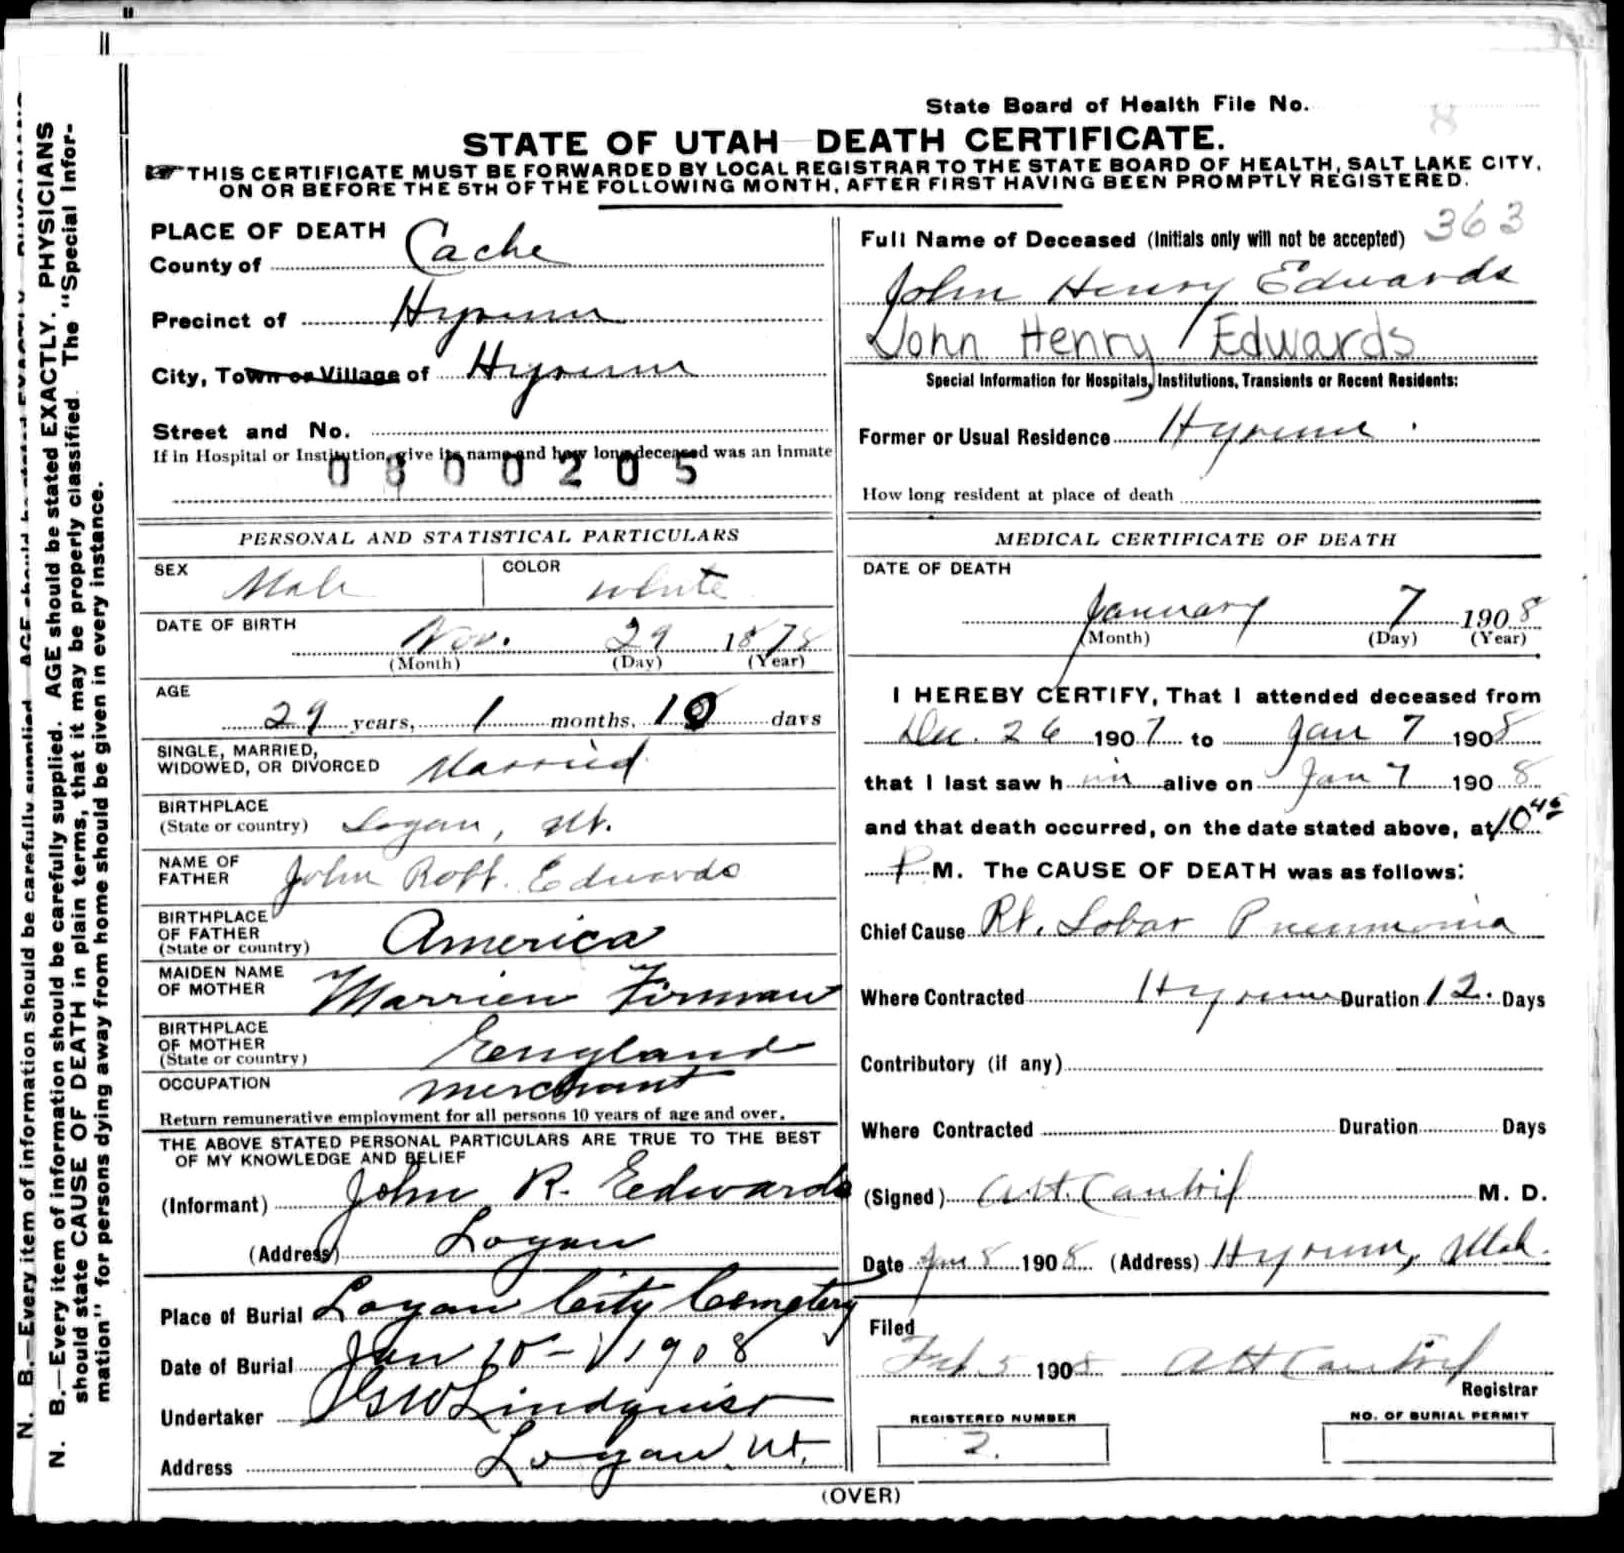 State Board of Health File No. 8
STATE OF UTAH DEATH CERTIFICATE.
THIS CERTIFICATE MUST BE FORWARDED BY LOCAL REGISTRAR TO THE STATE BOARD OF HEALTH, SALT LAKE CITY,
ON OR BEFORE THE 5TH OF THE FOLLOWING MONTH, AFTER FIRST HAVING BEEN PROMPTLY REGISTERED.
PLACE OF DEATH
County of Cache
Precinct of Hyrum
City, Town or Village of Hyrum
Street and No.
If in Hospital or Institution, give its name and how long deceased was an inmate
0800205
PERSONAL AND STATISTICAL PARTICULARS
SEX Male COLOR white
DATE OF BIRTH
Nov. 29 1878
(Month) (Day) (Year)
AGE
29 years, 1 months, 10 days
SINGLE, MARRIED,
WIDOWED, OR DIVORCED Married
BIRTHPLACE
(State or country) Logan, Ut.
NAME OF
FATHER John Robt. Edwards
BIRTHPLACE
OF FATHER
(State or country) America
MAIDEN NAME
OF MOTHER Marrien Firman
BIRTHPLACE
OF MOTHER
(State or country) Eengland
OCCUPATION merchant
Return remunerative employment for all persons 10 years of age and over.
THE ABOVE STATED PERSONAL PARTICULARS ARE TRUE TO THE BEST
OF MY KNOWLEDGE AND BELIEF
(Informant) John R. Edwards
(Address) Logan
Place of Burial Logan City Cemetery
Date of Burial Jan 10 - 1908
Undertaker Lindquist
Address Logan, Ut.
363
Full Name of Deceased (Initials only will not be accepted)
John Henry Edwards
John Henry Edwards
Special Information for Hospitals, Institutions, Transients or Recent Residents:
Former or Usual Residence Hyrum
How long resident at place of death
MEDICAL CERTIFICATE OF DEATH
DATE OF DEATH
January 7 1908
(Month) (Day) (Year)
I HEREBY CERTIFY, That I attended deceased from
Dec. 26 1907 to Jan 7 1908
that I last saw him alive on Jan 7 1908
and that death occurred, on the date stated above, at 10 45
P M. The CAUSE OF DEATH was as follows:
Chief Cause Rt. Lobar Pneumonia
Where Contracted Hyrum Duration 12. Days
Contributory (if any)
Where Contracted Duration Days
(Signed) M. D.
Date Jan 8 1908 (Address) Hyrum, Utah.
Filed
Feb. 5 1908
Registrar
REGISTERED NUMBER
2.
NO. OF BURIAL PERMIT
(OVER)
N. B.—Every item of information should be carefully supplied. AGE should be stated EXACTLY. PHYSICIANS
N. B.—Every item of information should be carefully supplied. AGE should be stated EXACTLY. PHYSICIANS
should state CAUSE OF DEATH in plain terms, that it may be properly classified. The "Special Infor-
mation" for persons dying away from home should be given in every instance.